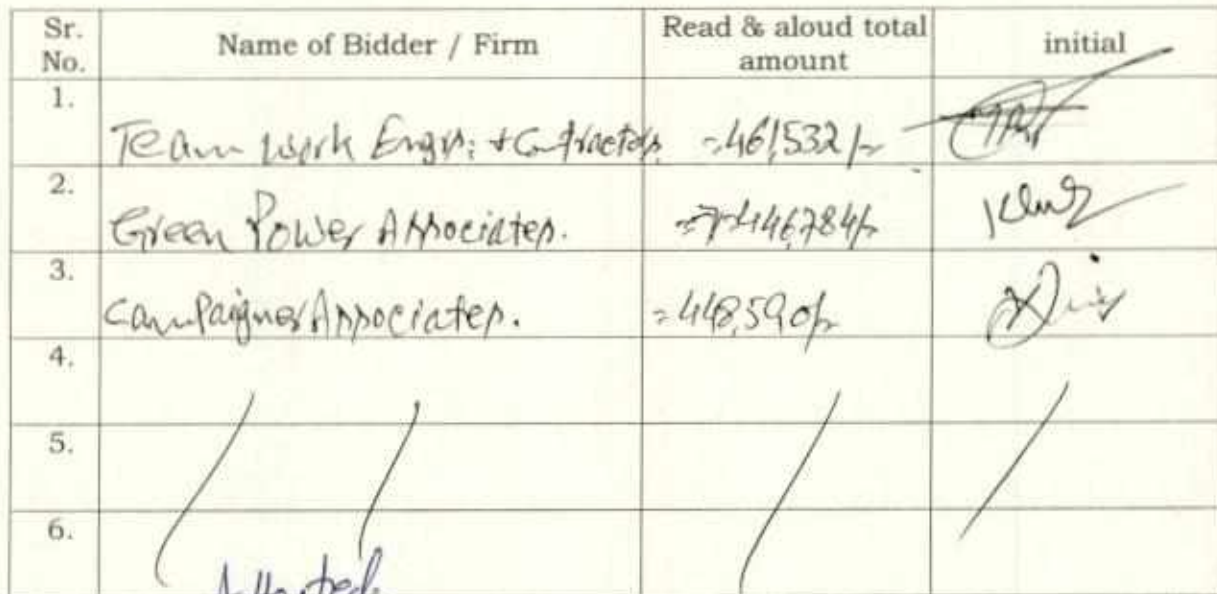 Sr. No. Name of Bidder / Firm Read & aloud total amount initial
1. Team work Engrs: + Contractors =461,532/-
2. Green Power Associates. 446,784/-
3. Campaigner Associates. =448,590/-
4.
5.
6.
Attested